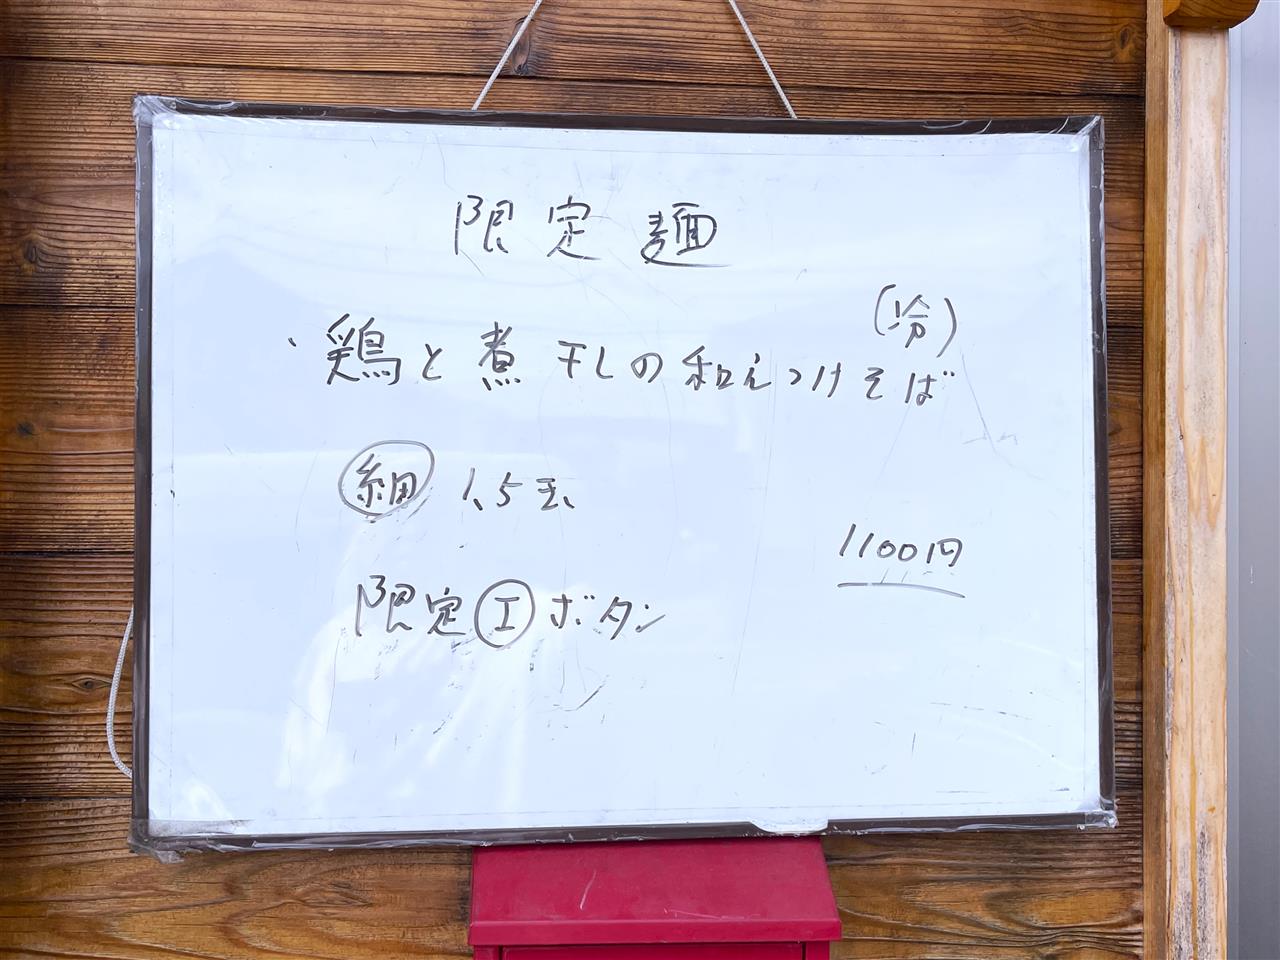 限定麺
・鶏と煮干しの和えつけそば
(冷)
細 1.5玉
1100円
限定エボタン